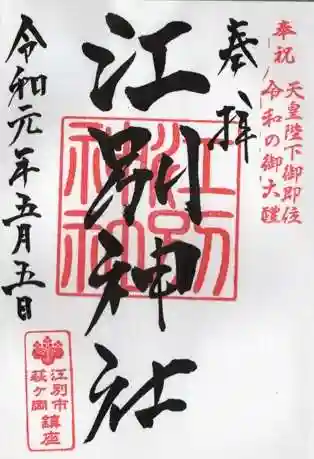 奉祝
天皇陛下御即位
令和の御大禮
奉拝
江別神社
江別
神社
令和元年五月五日
江別市
萩ヶ岡
鎮座